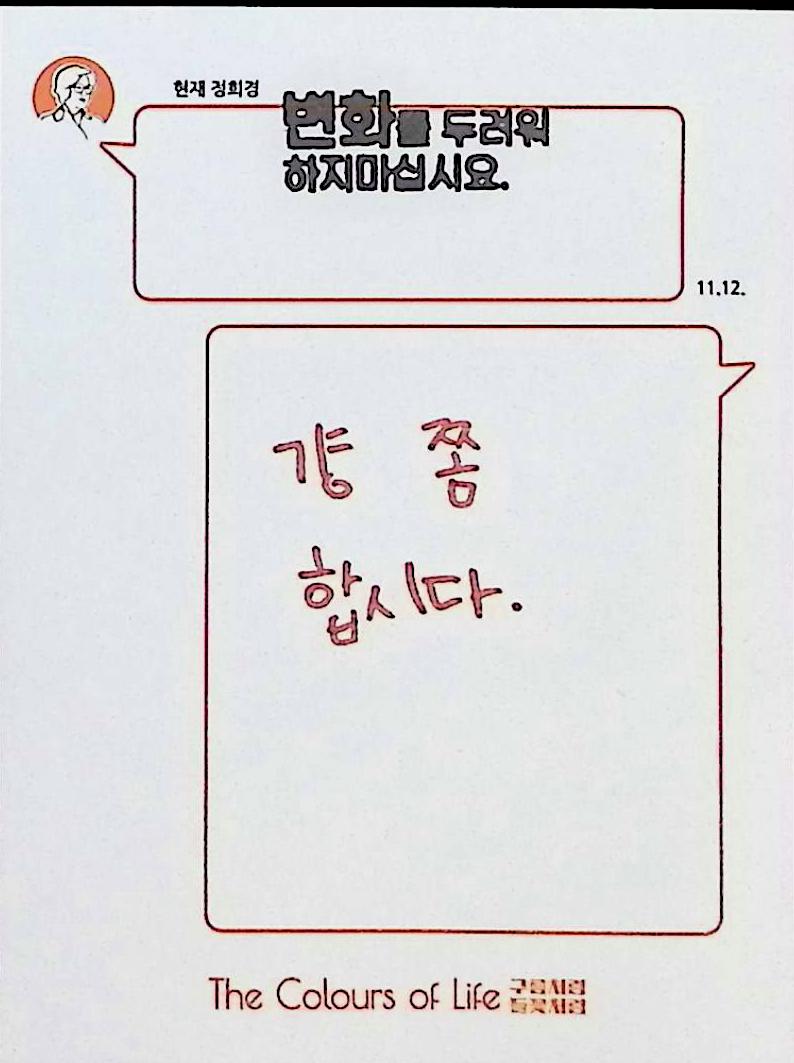 현재 정희경
변화를 두려워
하지마십시요.
11.12.
걍 쫌
합시다.
The Colours of Life 구름처럼
들꽃처럼